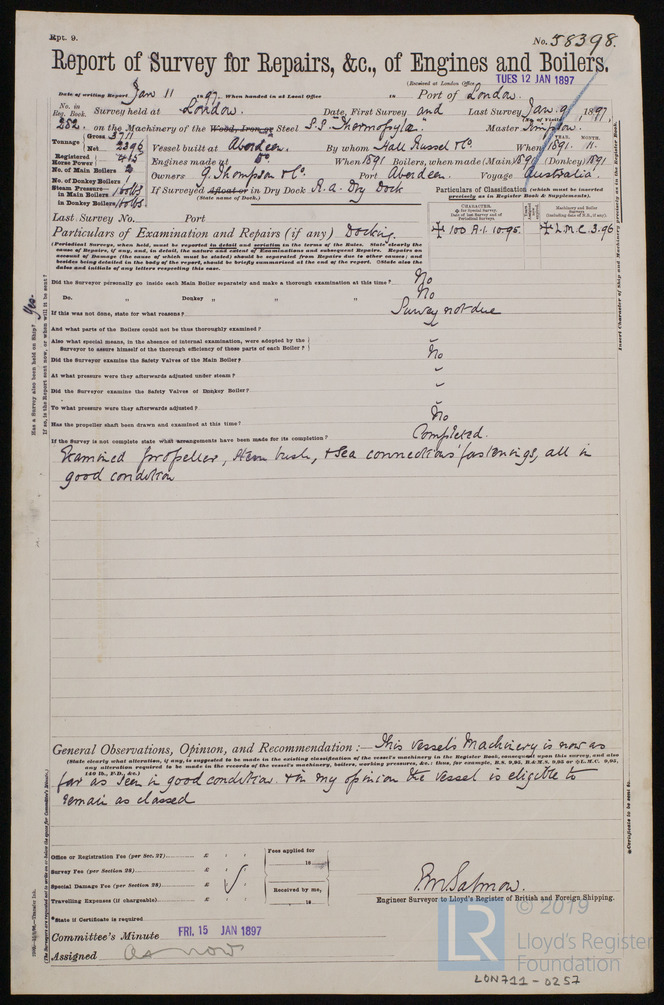 Rpt. 9.
No. 58398.
Report of Survey for Repairs, &c., of Engines and Boilers.
(Received at London Office TUES 12 JAN 1897
Date of writing Report Jan 11 1897. When handed in at Local Office 18 Port of London.
No. in Reg. Book. Survey held at London. Date, First Survey and Last Survey Jan. 9, 1897.
252. on the Machinery of the Wood, Iron or Steel S.S. Thermopylæ. Master Simpson.
Tonnage Gross 3711 Net 2396 Vessel built at Aberdeen. By whom Hall Russel & Co. When YEAR. 1891. MONTH. 11.
Registered Horse Power 415 Engines made at Do. When 1891 Boilers, when made (Main) 1891 (Donkey) 1891
No. of Main Boilers 2 Owners G. Thompson & Co. Port Aberdeen. Voyage Australia.
No. of Donkey Boilers 1
Steam Pressure— in Main Boilers in Donkey Boilers If Surveyed Afloat or in Dry Dock R. A. Dry Dock
(State name of Dock.)
Particulars of Classification (which must be inserted precisely as in Register Book & Supplements).
Last Survey No. Port
CHARACTER.
Machinery and Boiler Surveys
100 A.1. 10.95. L.M.C. 3.96
Particulars of Examination and Repairs (if any) Docking.
(Periodical Surveys, when held, must be reported in detail and seriatim in the terms of the Rules. State clearly the cause of Repairs, if any, and, in detail, the nature and extent of Examinations and subsequent Repairs. Repairs on account of Damage (the cause of which must be stated) should be separated from Repairs due to other causes; and besides being detailed in the body of the report, should be briefly summarised at the end of the report. State also the dates and initials of any letters respecting this case.
Did the Surveyor personally go inside each Main Boiler separately and make a thorough examination at this time? No
Do. „ Donkey „ „ „ No
If this was not done, state for what reasons? Survey not due
And what parts of the Boilers could not be thoroughly examined? –
Also what special means, in the absence of internal examination, were adopted by the
Surveyor to assure himself of the thorough efficiency of these parts of each Boiler? –
Did the Surveyor examine the Safety Valves of the Main Boiler? No
At what pressure were they afterwards adjusted under steam? –
Did the Surveyor examine the Safety Valves of Donkey Boiler? –
To what pressure were they afterwards adjusted? –
Has the propeller shaft been drawn and examined at this time? No
If the Survey is not complete state what arrangements have been made for its completion? Completed.
Examined propeller, stern bush, & sea connections fastenings, all in
good condition
General Observations, Opinion, and Recommendation:— This vessels Machinery is now as
(State clearly what alteration, if any, is suggested to be made in the existing classification of the vessel's machinery in the Register Book, consequent upon this survey, and also any alteration required to be made in the records of the vessel's machinery, boilers, working pressures, &c.: thus, for example, B.S. 9,95, B.&M.S. 9,95 or L.M.C. 9,95, 140 lb., F.D., &c.)
far as seen in good condition. & in my opinion the vessel is eligible to
remain as classed
Office or Registration Fee (per Sec. 27) £ Fees applied for
Survey Fee (per Section 28) £ 18
Special Damage Fee (per Section 28) £ Received by me,
Travelling Expenses (if chargeable) £ 18
P. M. Salmon.
Engineer Surveyor to Lloyd's Register of British and Foreign Shipping.
*State if Certificate is required
Committee's Minute FRI. 15 JAN 1897
Assigned as now
Has a Survey also been held on Ship? Yes.
If so, is the Report sent now, or when will it be sent?
Insert Character of Ship and Machinery precisely as in the Register Book.
*Certificate to be sent to
© 2019
LR
Lloyd's Register
Foundation
LON711-0257